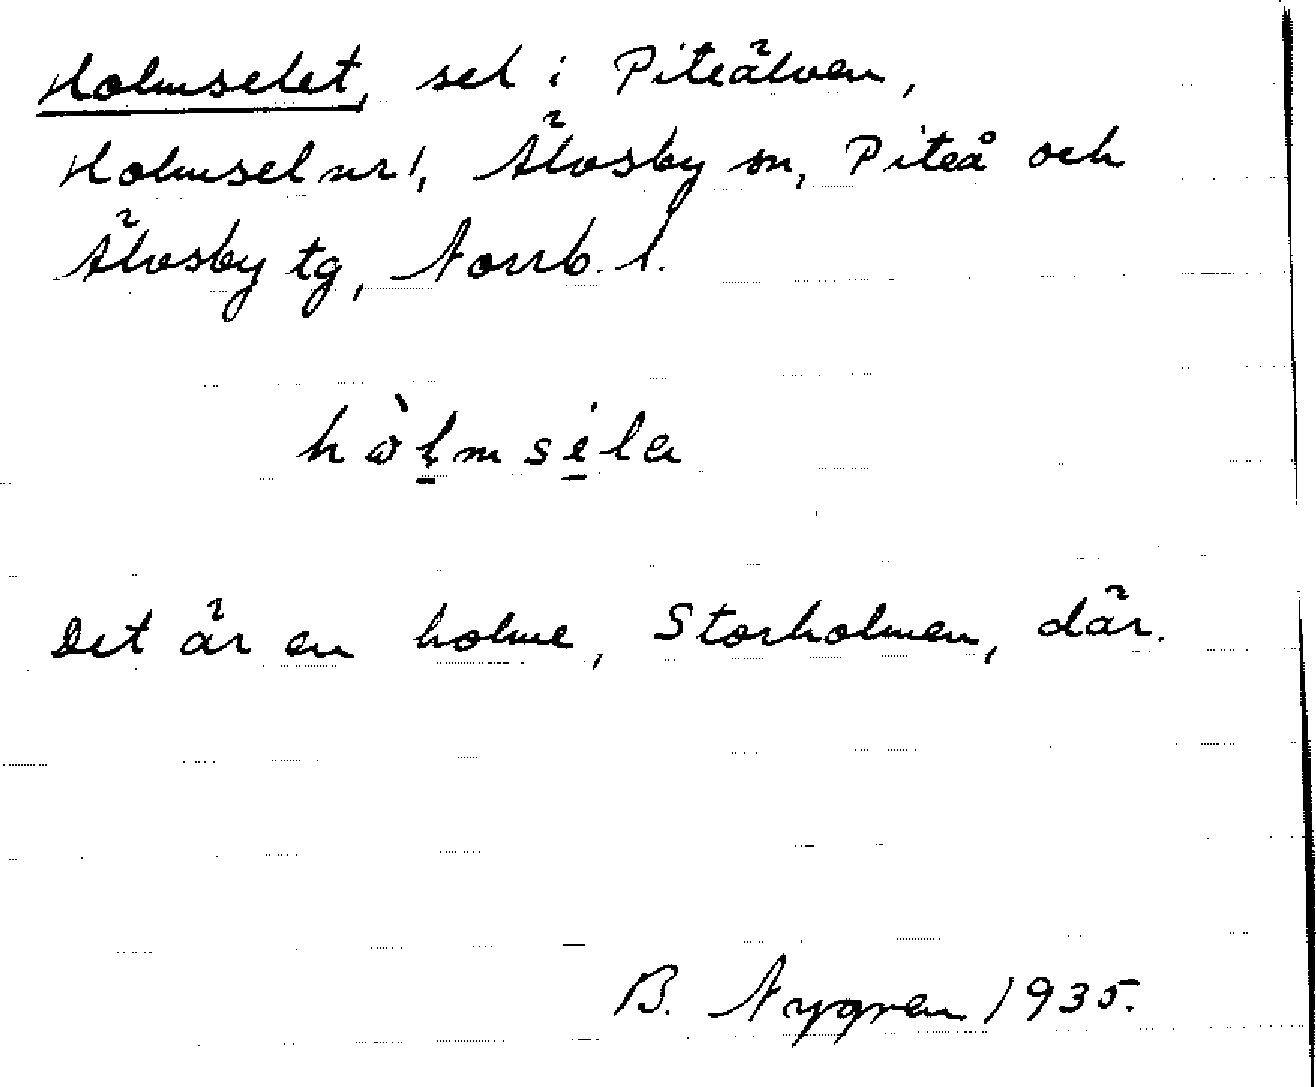 Holmselet, sel i Piteälven,
Holmsel nr 1, Älvsby sn, Piteå och
Älvsby tg, Norrb. l.
hòl̠msi̠la
Det är en holme, Storholmen, där.
B. Nygren 1935.